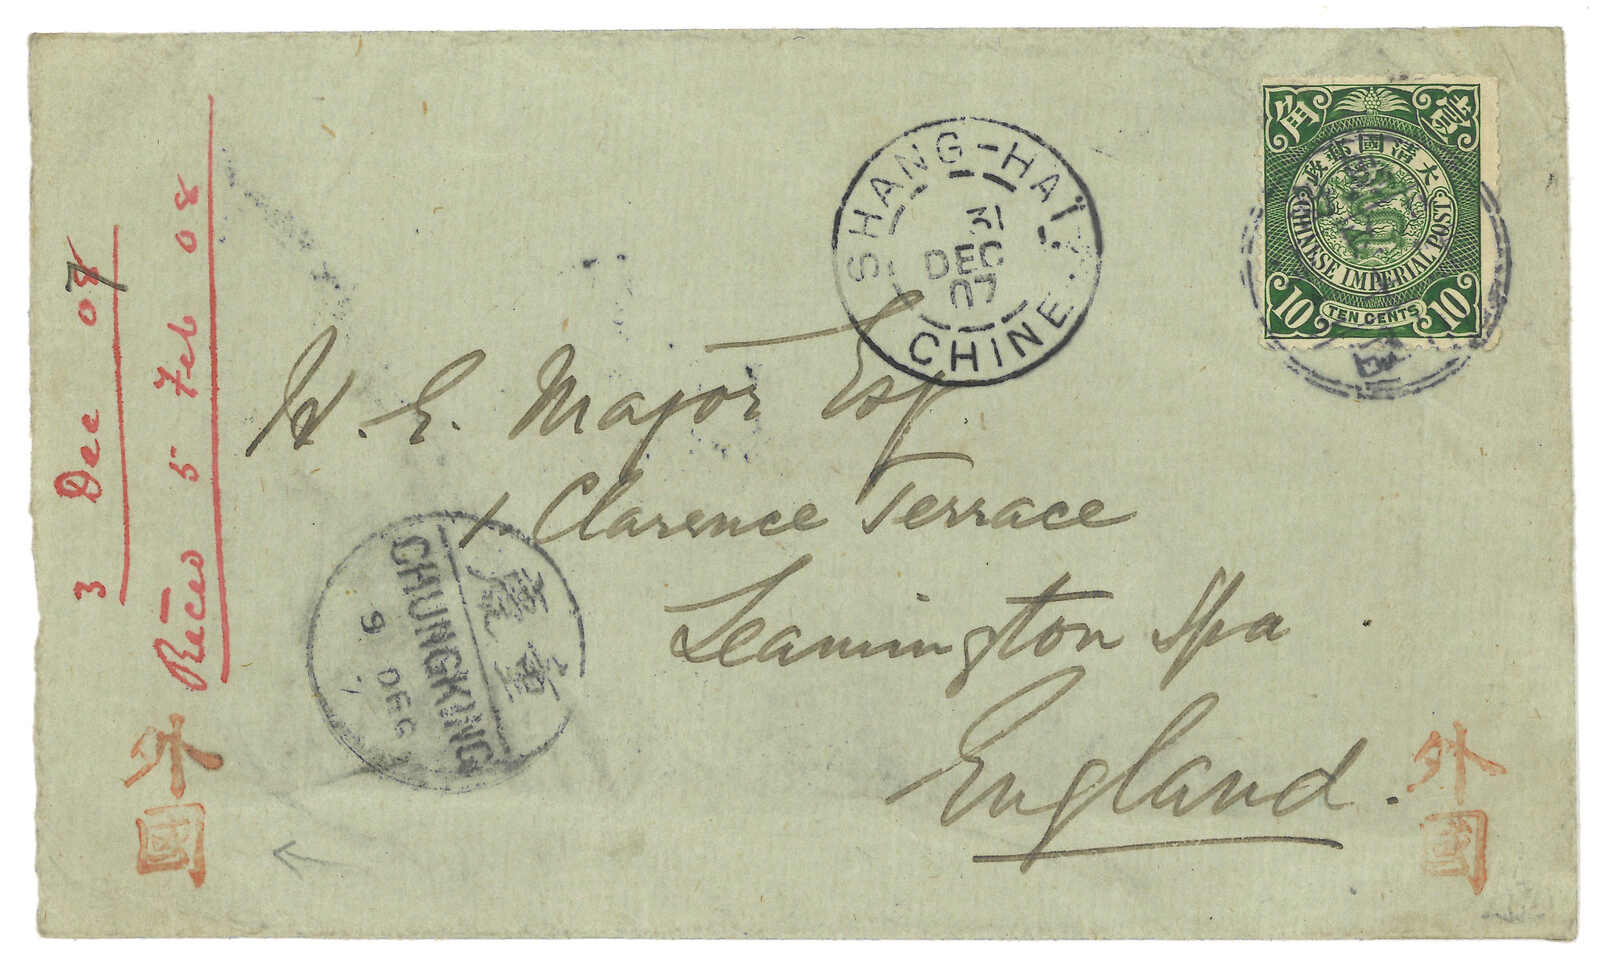 3 Dec 07
Recev 5 Feb 08
SHANG-HAI
31
DEC
07
CHINE
角 壹
大清國郵政
CHINESE IMPERIAL POST
10 TEN CENTS 10
W. E. Major Esq
1 Clarence Terrace
Leamington Spa.
England.
重慶
CHUNGKING
9 DEC
外國
外國